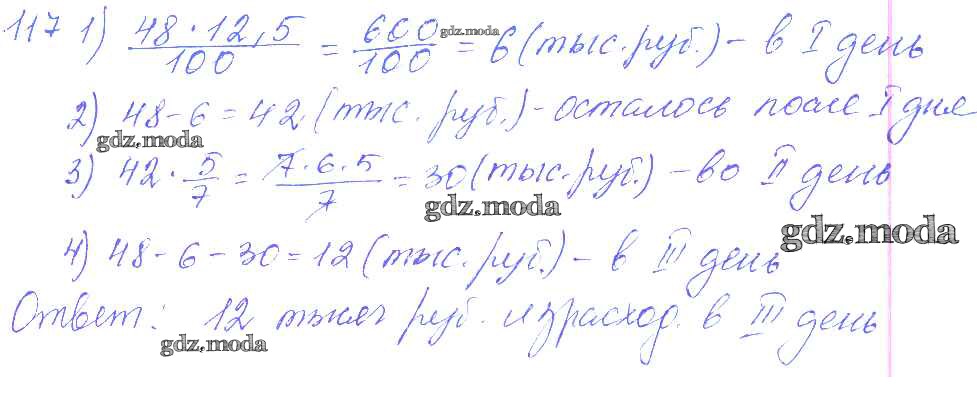 117 1) 48 · 12,5 / 100 = 600 / 100 = 6 (тыс. руб.) - в I день
gdz.moda
2) 48 - 6 = 42 (тыс. руб.) - осталось после I дня
gdz.moda
3) 42 · 5/7 = 7 · 6 · 5 / 7 = 30 (тыс. руб.) - во II день
gdz.moda
gdz.moda
4) 48 - 6 - 30 = 12 (тыс. руб.) - в III день
Ответ: 12 тысяч руб. израсход. в III день
gdz.moda